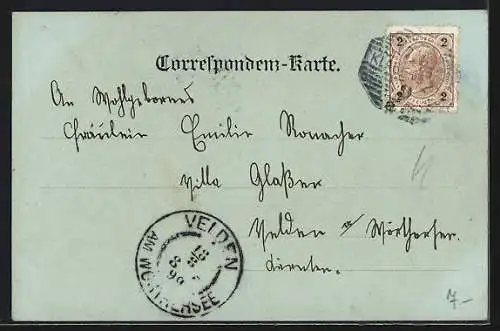 2 2
2 2
Correspondenz-Karte.
An Wohlgeborenes
Fräulein Emilie Ronacher
Villa Glaßer
Velden a/ Wörthersee
Kärnten.
VELDEN
31 8 98
AM WÖRTHERSEE
7.-